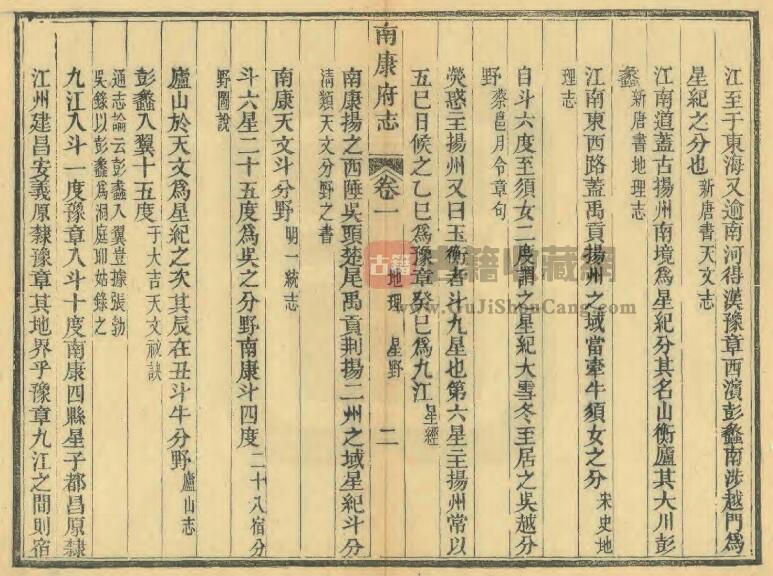 江至于東海又逾南河得漢豫章西濱彭蠡南涉越門為
星紀之分也 新唐書天文志
江南道蓋古揚州南境為星紀分其名山衡廬其大川彭
蠡 新唐書地理志
江南東西路蓋禹貢揚州之域當牽牛須女之分 宋史地
理志
自斗六度至須女二度謂之星紀大雪冬至居之吳越分
野 蔡邕月令章句
熒惑主揚州又曰玉衡者斗九星也第六星主揚州常以
五巳日候之乙巳為豫章癸巳為九江 星經
南康府志 卷一 地理 星野 二
南康揚之西陲吳頭楚尾禹貢荆揚二州之域星紀斗分
清類天文分野之書
南康天文斗分野 明一統志
斗六星二十五度為吳之分野南康斗四度 二十八宿分
野圖說
廬山於天文為星紀之次其辰在丑斗牛分野 廬山志
彭蠡入翼十五度 于大吉天文祕訣
通志論云彭蠡入翼豈據張勃
吳錄以彭蠡為洞庭耶姑錄之
九江入斗一度豫章入斗十度南康四縣星子都昌原隸
江州建昌安義原隸豫章其地界乎豫章九江之間則宿
古籍 古籍收藏网
www.GuJiShouCang.com